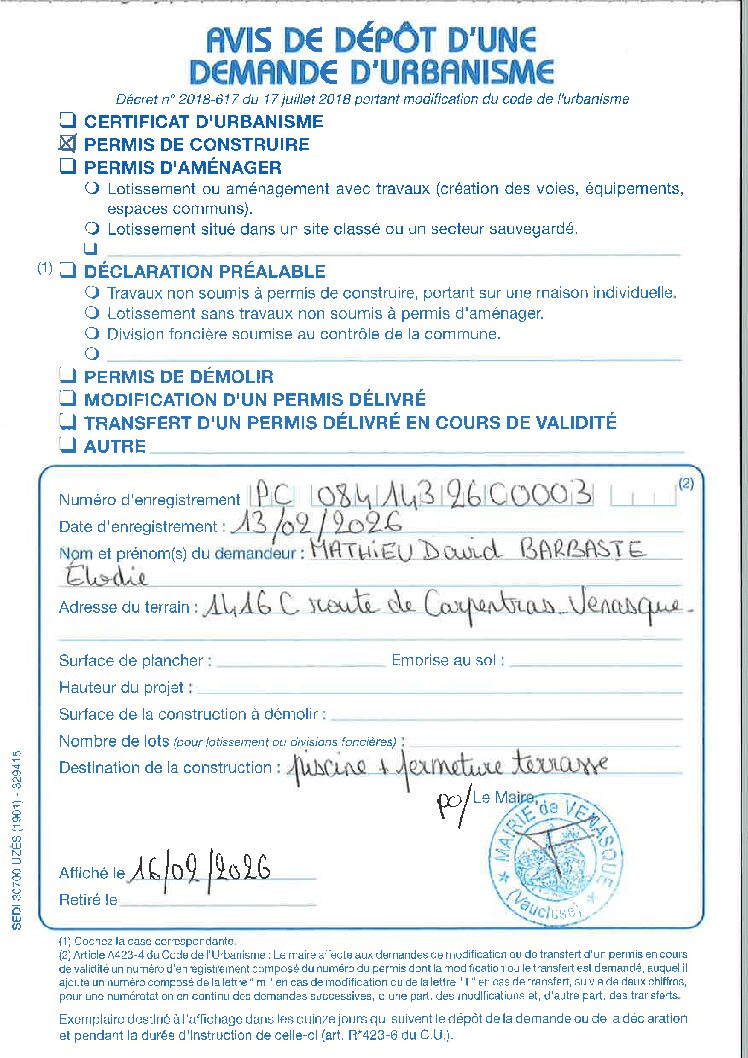 AVIS DE DÉPÔT D'UNE
DEMANDE D'URBANISME
Décret n° 2018-617 du 17 juillet 2018 portant modification du code de l'urbanisme
CERTIFICAT D'URBANISME
PERMIS DE CONSTRUIRE
PERMIS D'AMÉNAGER
Lotissement ou aménagement avec travaux (création des voies, équipements,
espaces communs).
Lotissement situé dans un site classé ou un secteur sauvegardé.
(1) DÉCLARATION PRÉALABLE
Travaux non soumis à permis de construire, portant sur une maison individuelle.
Lotissement sans travaux non soumis à permis d'aménager.
Division foncière soumise au contrôle de la commune.
PERMIS DE DÉMOLIR
MODIFICATION D'UN PERMIS DÉLIVRÉ
TRANSFERT D'UN PERMIS DÉLIVRÉ EN COURS DE VALIDITÉ
AUTRE
Numéro d'enregistrement PC 084 143 26 C0003 (2)
Date d'enregistrement : 13/02/2026
Nom et prénom(s) du demandeur : MATHIEU David BARBASTE
Elodie
Adresse du terrain : 1416 C route de Carpentras Venasque.
Surface de plancher : Emprise au sol :
Hauteur du projet :
Surface de la construction à démolir :
Nombre de lots (pour lotissement ou divisions foncières) :
Destination de la construction : piscine + fermeture terrasse
po/ Le Maire,
MAIRIE de VENASQUE
(Vaucluse)
Affiché le 16/02/2026
Retiré le
SEDI 30700 UZÈS (1901) - 329415
(1) Cochez la case correspondante.
(2) Article A423-4 du Code de l'Urbanisme : Le maire affecte aux demandes de modification ou de transfert d'un permis en cours
de validité un numéro d'enregistrement composé du numéro du permis dont la modification ou le transfert est demandé, auquel il
ajoute un numéro composé de la lettre "m" en cas de modification ou de la lettre "T" en cas de transfert, suivie de deux chiffres,
pour une numérotation en continu des demandes successives, d'une part, des modifications et, d'autre part, des transferts.
Exemplaire destiné à l'affichage dans les quinze jours qui suivent le dépôt de la demande ou de la déclaration
et pendant la durée d'instruction de celle-ci (art. R*423-6 du C.U.).